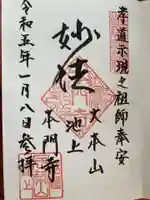 孝道示現之祖師奉安
大本山
妙法
池上
本門寺
令和五年一月八日参拝